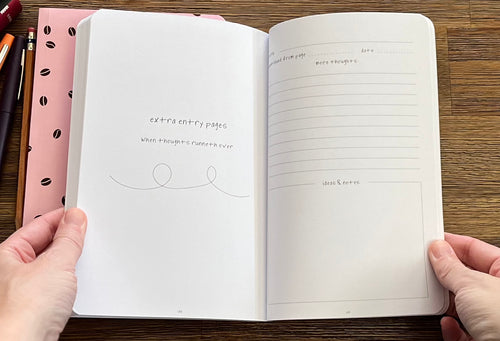 extra entry pages
when thoughts runneth over
date
from page
more thoughts
ideas & notes